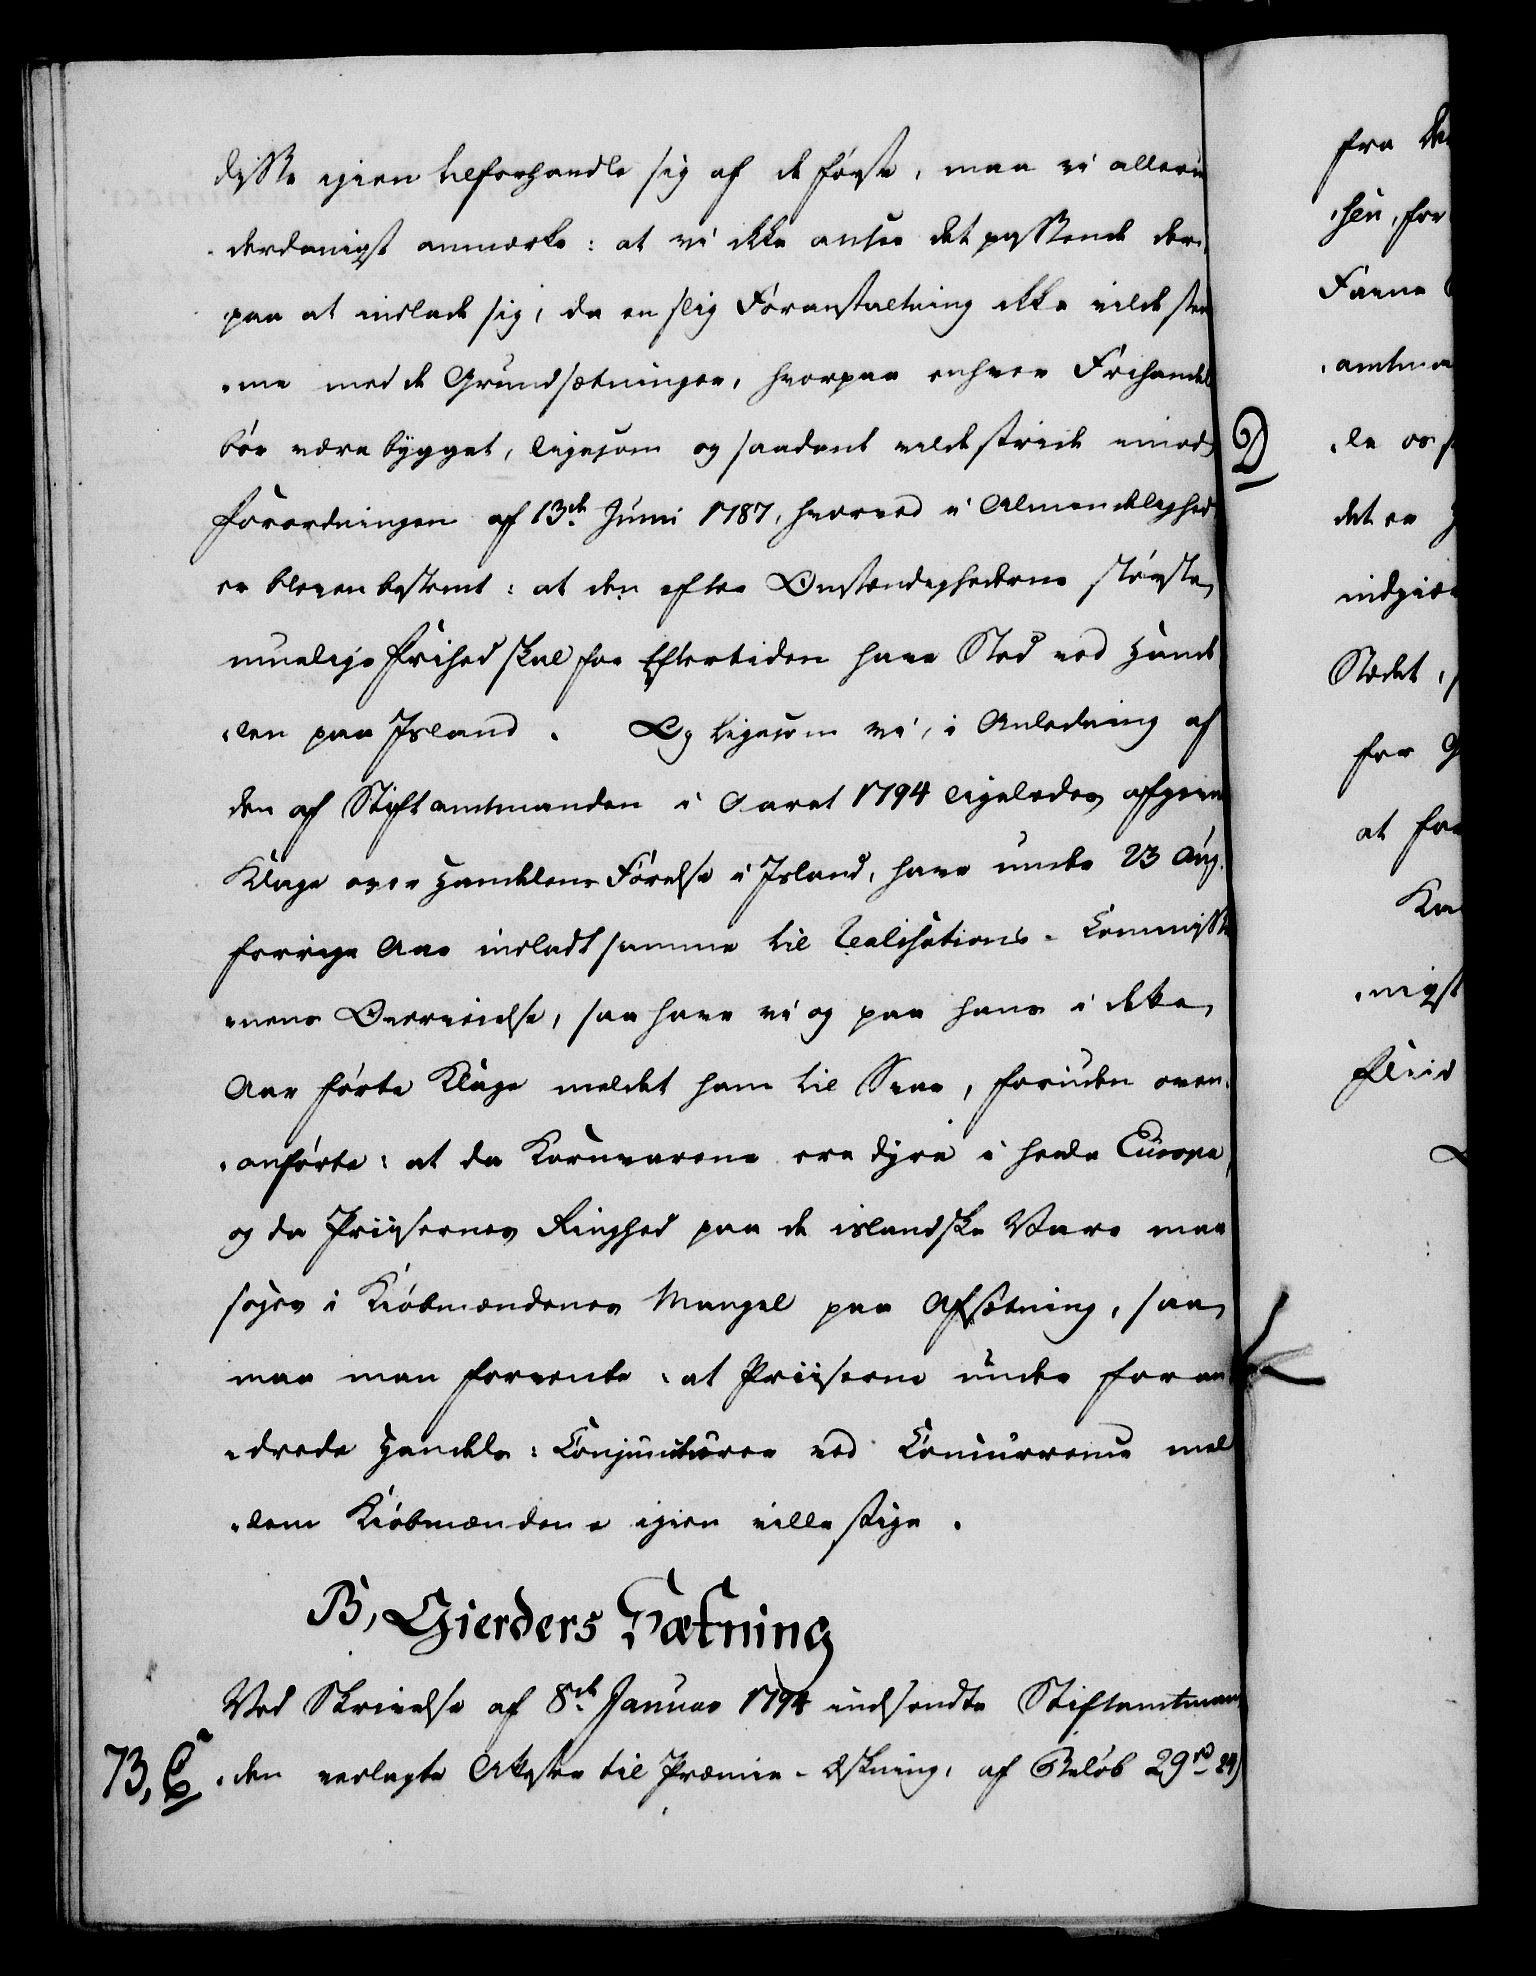 disse igien tilforhandle sig af de første, maa vi allerun
derdanigst anmærke: at vi ikke ansee det passende der-
paa at indlade sig, da en slig Foranstaltning ikke vilde stem
-me med de Grundsætninger, hvorpaa enhver Frihandel
bør være bygget, ligesom og saadant vilde stride imod
Forordningen af 13de Junii 1787, hvorved i Almindelighed
er bleven bestemt: at den efter Omstændighederne største
muelige Frihed skal for Eftertiden have Sted ved Hand
-len paa Island. Og ligesom vi, i Anledning af
den af Stiftamtmanden i Aaret 1794 ligeledes afgivne
Klage over Handelens Førelse i Island, have under 23 Aug.
forrige Aar indladt samme til Realisations-Commissio
-nens Overveielse, saa have vi og paa hans i dette
Aar førte Klage meldet ham til Svar, foruden oven-
-anførte: at da Kornvarene ere dyre i heele Europa,
og da Priisernes Ringhed paa de islandske Vare maa
søges i Kiøbmændenes Mangel paa Afsætning, saa
maa man forvente: at Priiserne under foran
-drede Handels-Conjuncturer ved Concurrence mel
-lem Kiøbmændene igien ville stige.
B, Gierders Sætning
Ved Skrivelse af 8de Januar 1794 indsendte Stiftamtman
73, C -den verlagte Attester til Præmie-Æskning, af Beløb 29 rd 24
fra
for
Favne
amtma
2)
det er
indgive
Stædet,
for
at
-nigst